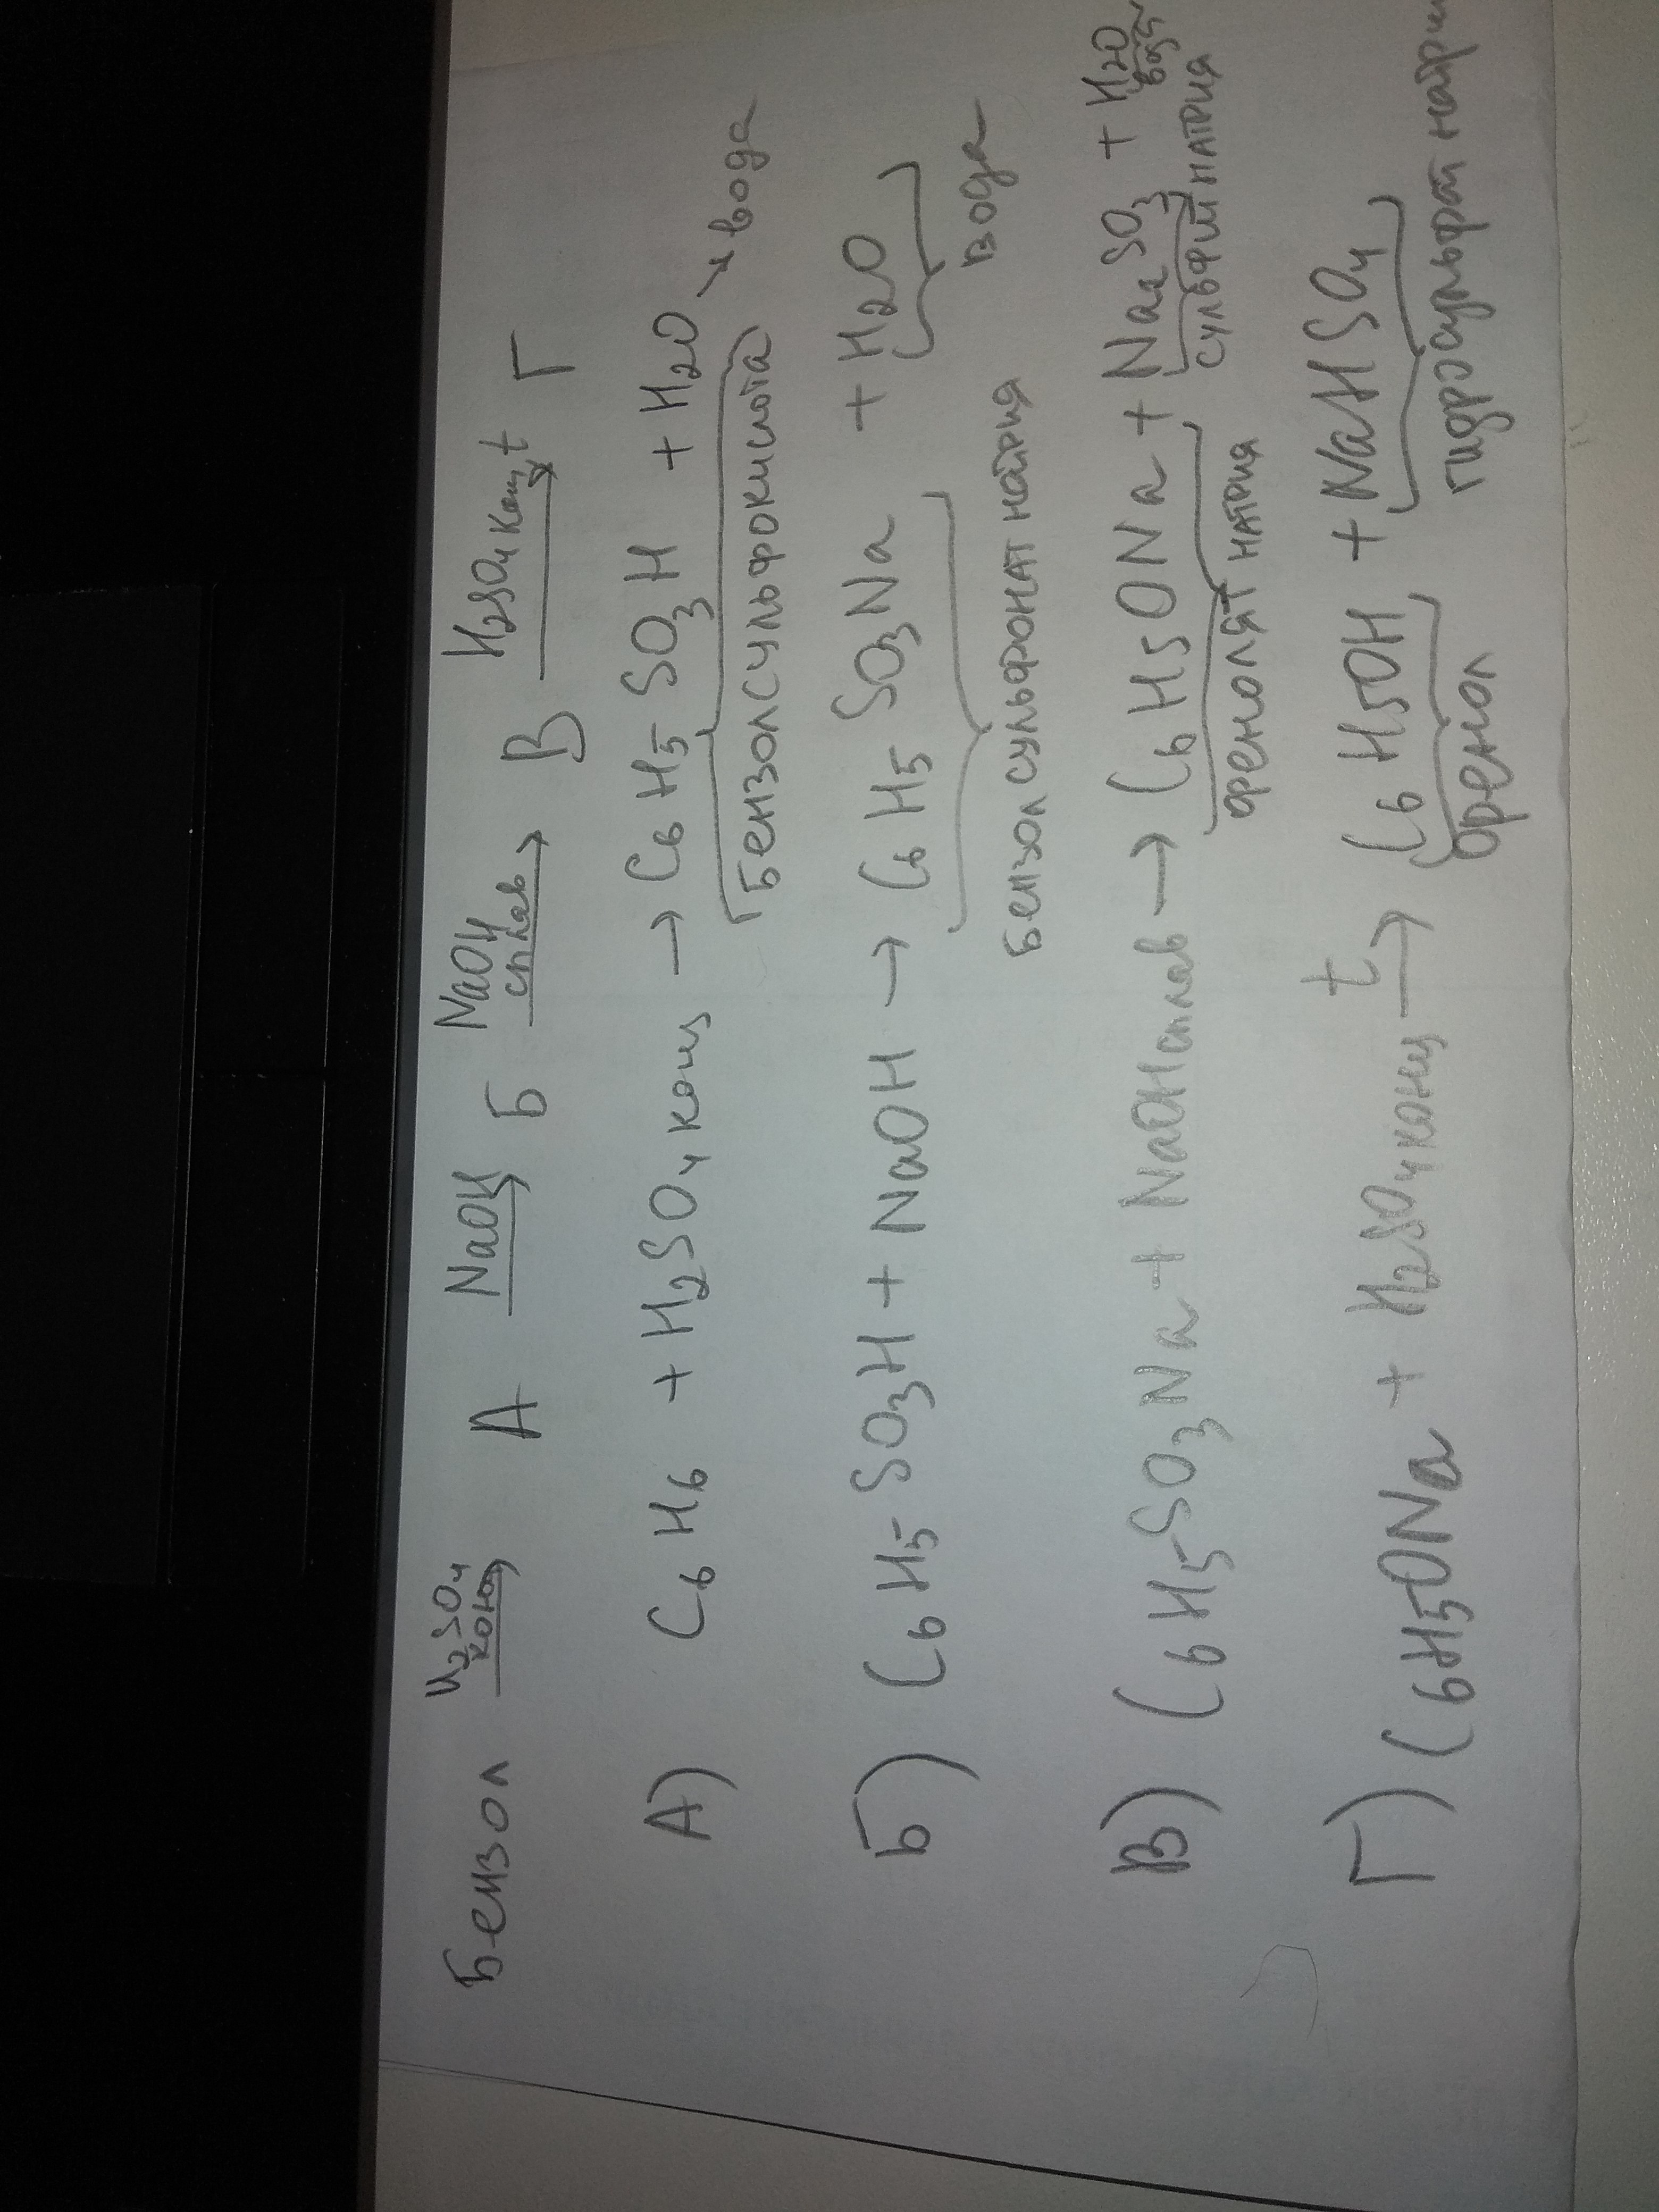 Бензол H2SO4 конц → А NaOH → Б NaOH сплав → В H2SO4 конц, t → Г
А) C6H6 + H2SO4 конц → C6H5SO3H + H2O → вода
Бензолсульфокислота
Б) C6H5SO3H + NaOH → C6H5SO3Na + H2O
Бензолсульфонат натрия вода
В) C6H5SO3Na + NaOHсплав → C6H5ONa + Na2SO3 + H2O
фенолят натрия сульфит натрия вода
Г) C6H5ONa + H2SO4конц t → C6H5OH + NaHSO4
Фенол гидросульфат натри